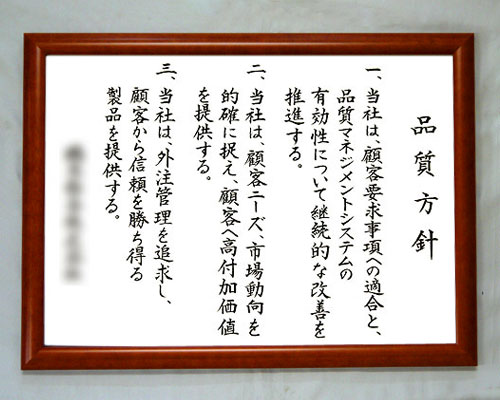 品質方針
一、当社は、顧客要求事項への適合と、
品質マネジメントシステムの
有効性について継続的な改善を
推進する。
二、当社は、顧客ニーズ、市場動向を
的確に捉え、顧客へ高付加価値
を提供する。
三、当社は、外注管理を追求し、
顧客から信頼を勝ち得る
製品を提供する。